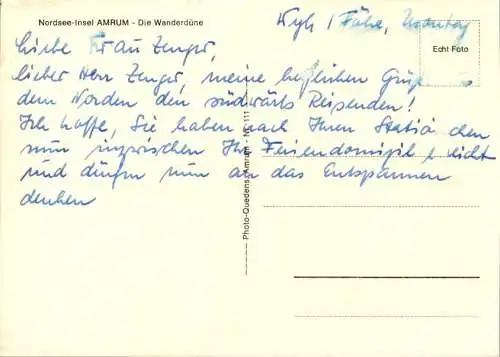 Nordsee-Insel AMRUM - Die Wanderdüne
Wyk / Föhr, Montag
Echt Foto
Liebe Frau Zenger,
lieber Herr Zenger, meine herzlichen Grüße aus
dem Norden den südwärts Reisenden!
Ich hoffe, Sie haben nach Ihren Statiönchen
nun inzwischen Ihr Feriendomizil erreicht
und dürfen nun an das Entspannen
denken
Photo-Quedens, Amrum - Nr. 111